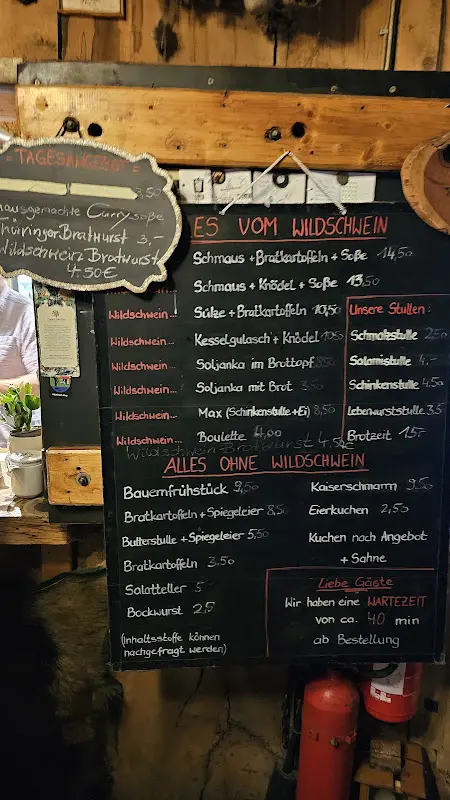 = TAGESANGEBOT =
3,50
hausgemachte Currysoße
Thüringer Bratwurst 3,-
Wildschwein Bratwurst
4.50€
ES VOM WILDSCHWEIN
Schmaus + Bratkartoffeln + Soße 14,50
Schmaus + Knödel + Soße 13,50
Wildschwein... Sülze + Bratkartoffeln 10,50
Wildschwein... Kesselgulasch + Knödel 10,50
Wildschwein... Soljanka im Brottopf 8,50
Wildschwein... Soljanka mit Brot 3,50
Wildschwein... Max (Schinkenstulle + Ei) 8,50
Wildschwein... Boulette 4,00
Wildschwein Bratwurst 4.50
Unsere Stullen:
Schmalzstulle 2,50
Salamistulle 4,-
Schinkenstulle 4,50
Leberwurststulle 3,5
Brotzeit 15,-
ALLES OHNE WILDSCHWEIN
Bauernfrühstück 9,50
Bratkartoffeln + Spiegeleier 8,50
Butterstulle + Spiegeleier 5,50
Bratkartoffeln 3.50
Salatteller 5
Bockwurst 2,5
(Inhaltsstoffe können
nachgefragt werden)
Kaiserschmarrn 9,50
Eierkuchen 2,50
Kuchen nach Angebot
+ Sahne
Liebe Gäste
Wir haben eine WARTEZEIT
von ca. 40 min
ab Bestellung